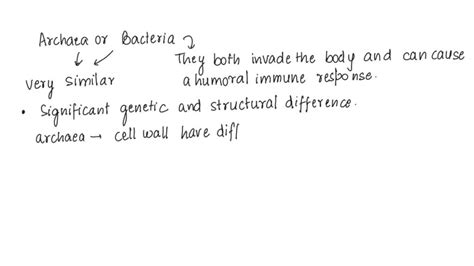 Archaea or Bacteria
They both invade the body and can cause
very similar
a humoral immune response.
• Significant genetic and structural difference.
archaea → cell wall have diff